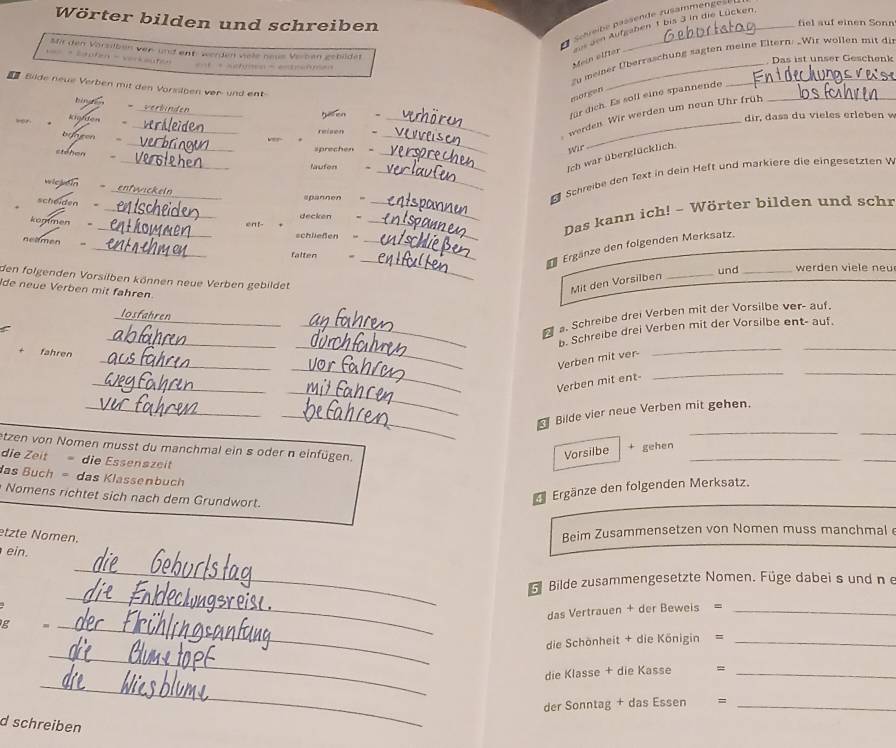 Wörter bilden und schreiben
Mit den Vorsilben ver- und ent- werden viele neue Verben gebildet
ver- + kaufen = verkaufen ent- + nehmen = entnehmen
1 Bilde neue Verben mit den Vorsilben ver- und ent-
binden = verbinden
ver- + kleiden = verkleiden
bringen = verbringen
stehen = verstehen
hören = verhören
reisen = verreisen
ver- + sprechen = versprechen
laufen = verlaufen
wickeln = entwickeln
+ scheiden = entscheiden
kommen = entkommen
nehmen = entnehmen
spannen = entspannen
decken = entspannen
ent- + schließen = entschließen
falten = entfalten
den folgenden Vorsilben können neue Verben gebildet
lde neue Verben mit fahren.
losfahren anfahren
abfahren durchfahren
+ fahren ausfahren vorfahren
wegfahren mitfahren
verfahren befahren
etzen von Nomen musst du manchmal ein s oder n einfügen.
die Zeit = die Essenszeit
das Buch = das Klassenbuch
Nomens richtet sich nach dem Grundwort.
etzte Nomen.
ein.
die Geburtstag
die Entdeckungsreise.
g = der Frühlingsanfang
die Blumetopf
die Wiesblume
d schreiben
4 Schreibe passende zusammengese
aus den Aufgaben 1 bis 3 in die Lücken.
Mein elfter Gebortstag fiel auf einen Sonn
zu meiner Überraschung sagten meine Eltern: „Wir wollen mit dir
morgen . Das ist unser Geschenk
für dich. Es soll eine spannende Entdechungsreise
werden. Wir werden um neun Uhr früh losfahren
Wir dir, dass du vieles erleben w
Ich war überglücklich.
5 Schreibe den Text in dein Heft und markiere die eingesetzten W
Das kann ich! – Wörter bilden und schr
1 Ergänze den folgenden Merksatz.
Mit den Vorsilben und werden viele neu
2 a. Schreibe drei Verben mit der Vorsilbe ver- auf.
b. Schreibe drei Verben mit der Vorsilbe ent- auf.
Verben mit ver-
Verben mit ent-
3 Bilde vier neue Verben mit gehen.
Vorsilbe + gehen
4 Ergänze den folgenden Merksatz.
Beim Zusammensetzen von Nomen muss manchmal e
5 Bilde zusammengesetzte Nomen. Füge dabei s und n e
das Vertrauen + der Beweis =
die Schönheit + die Königin =
die Klasse + die Kasse =
der Sonntag + das Essen =